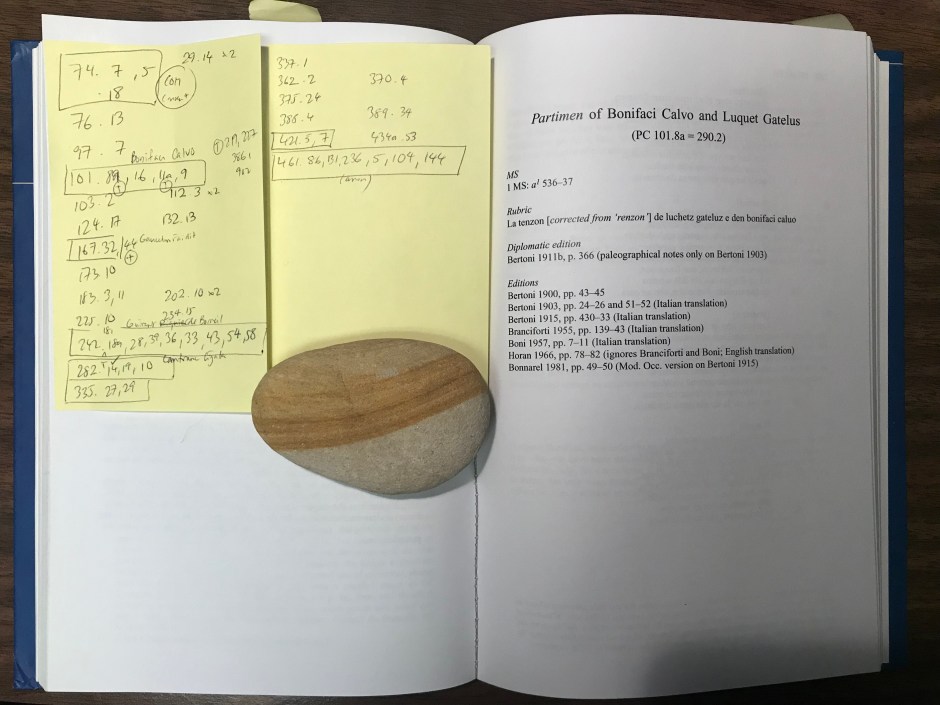 74. 7, 5
. 18
29.14 x2
76. 13
97. 7
Bonifaci Calvo
101. 16, 11a, 9
103. 2
112 3 x2
124. 17
132. 13
167.32, 44
173 10
183. 3, 11
202. 10 x2
225. 10
234.15
242. 18a, 28, 39, 36, 33, 43, 54, 58
282. 14, 19, 10
335. 27, 29
337. 1
362. 2
370. 4
375. 24
388. 4
389. 34
421. 5, 7
434a. 53
461. 86, 131, 236, 5, 104, 144
Partimen of Bonifaci Calvo and Luquet Gatelus
(PC 101.8a = 290.2)
MS
1 MS: a¹ 536–37
Rubric
La tenzon [corrected from ‘renzon’] de luchetz gateluz e den bonifaci caluo
Diplomatic edition
Bertoni 1911b, p. 366 (paleographical notes only on Bertoni 1903)
Editions
Bertoni 1900, pp. 43–45
Bertoni 1903, pp. 24–26 and 51–52 (Italian translation)
Bertoni 1915, pp. 430–33 (Italian translation)
Branciforti 1955, pp. 139–43 (Italian translation)
Boni 1957, pp. 7–11 (Italian translation)
Horan 1966, pp. 78–82 (ignores Branciforti and Boni; English translation)
Bonnarel 1981, pp. 49–50 (Mod. Occ. version on Bertoni 1915)